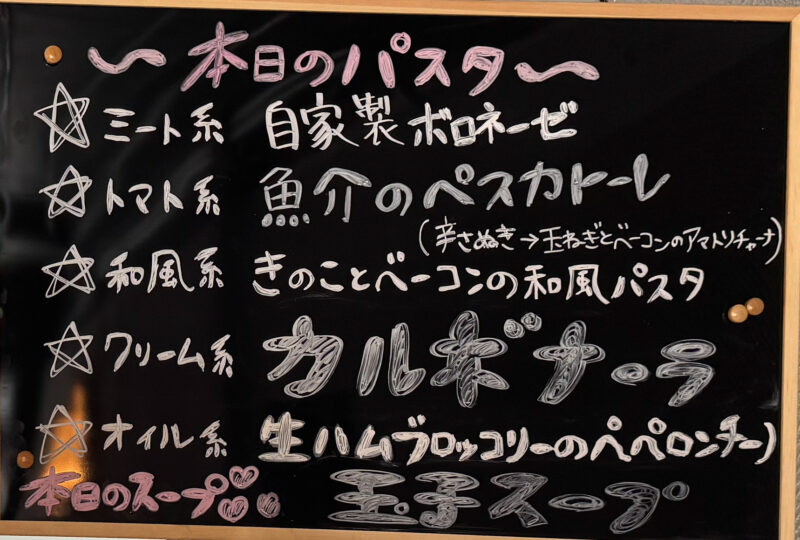 ～本日のパスタ～
☆ミート系 自家製ボロネーゼ
☆トマト系 魚介のペスカトーレ
(辛さぬき→玉ねぎとベーコンのアマトリチャーナ)
☆和風系 きのことベーコンの和風パスタ
☆クリーム系 カルボナーラ
☆オイル系 生ハムブロッコリーのペペロンチーノ
本日のスープ♡♡♡ 玉子スープ